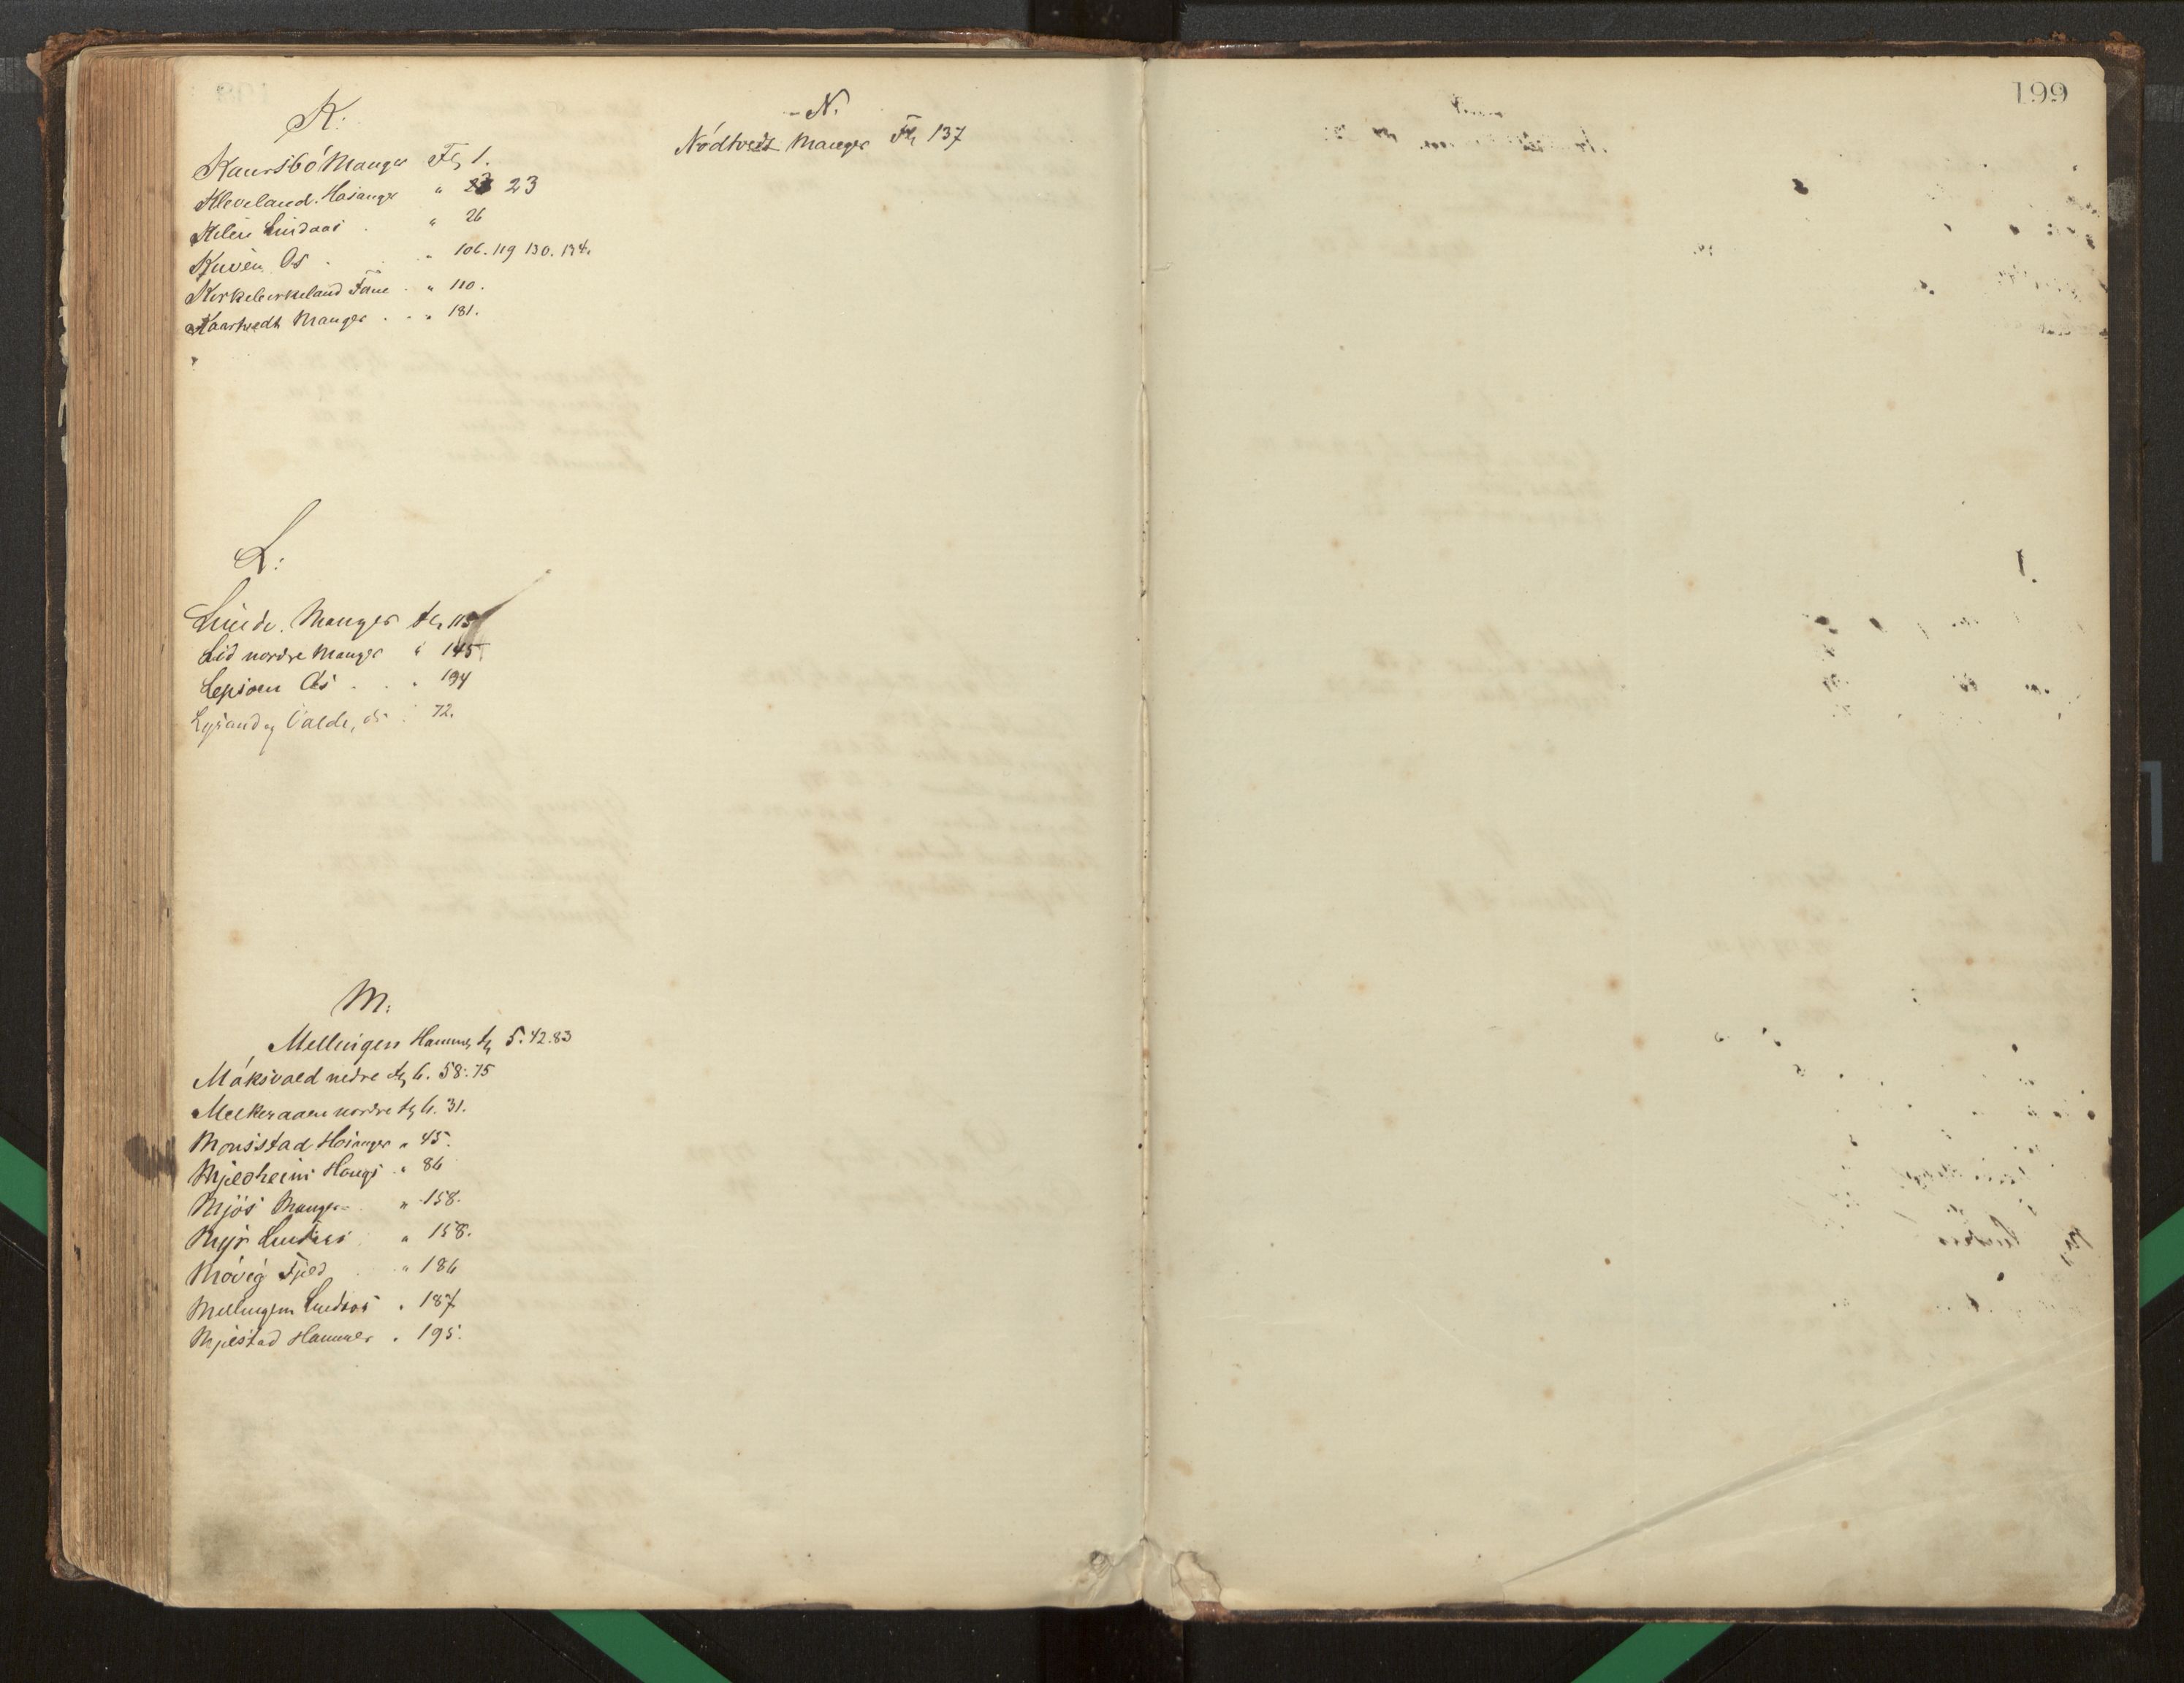 K:
Kaursbö Manger Fl, 1.
Kleveland. Hosanger " 23 23
Kilen Lindaas . " 26
Kuven Os . . " 106. 119 130. 134.
Kirkebirkeland Fane . " 110.
Kaartvedt Manger . . " 181.
L:
Linde. Manger fl, 115
Lid nordre Manger " 145
Lepsoen Os . . " 194
Lysand og Valde, Os . 72.
M:
Mellingen Hammer fl, 5. 42. 83
Móksvold nedre fl, 6. 58. 75
Melkeraaen nordre fl, 6. 31.
Monsstad Hosanger " 45.
Mjeldheim Haugs . " 86
Mjös Manger . " 158.
Myr Lindaas . " 158.
Móvig Fjeld . " 186
Mellingen Lindaas . 187
Mjelstad Hammer . 195.
N.
Nódtvedt Manger Fl, 137
199